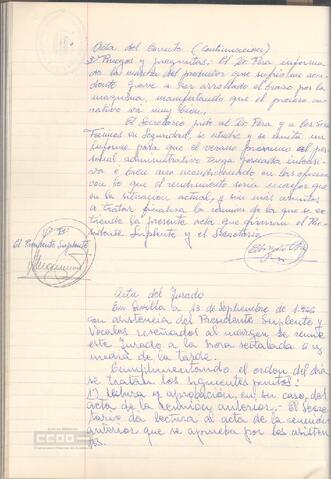 Acta del Jurado (Continuación)
3º Ruegos y preguntas.- El Dr. Pera informa
de la marcha del productor que sufrió un acci
dente grave a ser arrollado el brazo por la
maquina, manifestando que el proceso cu
rativo va muy bien.
El Secretario pide al Dr. Pera y a los Sres
Técnicos en Seguridad, se estudie y se emita un
informe para que el verano proximo el per
sonal administrativo tenga jornada intensi
va o bien aire acondicionado en las oficinas
con lo que el rendimiento seria mayor que
en la situacion actual, y sin más asuntos
a tratar finaliza la reunion de la que se ex
tiende la presente acta que firman el Pre
sidente Suplente y el Secretario
Vº Bº
El Presidente Suplente
Acta del Jurado
En Sevilla a 13 de Septiembre de 1.966
con asistencia del Presidente Suplente y
Vocales reseñados al margen se reune
este Jurado a la hora señalada 6 y
media de la tarde.
Cumplimentando el orden del dia
se tratan los siguientes puntos:
1º Lectura y aprobación, en su caso, del
acta de la reunion anterior.- El Secre
tario da lectura al acta de la reunion
anterior que se aprueba por los asisten
tes.
CCOO